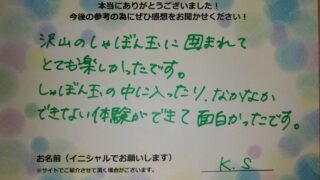 本当にありがとうございました!
今後の参考の為にぜひ感想をお聞かせください!
沢山のしゃぼん玉に囲まれて
とても楽しかったです。
しゃぼん玉の中に入ったり、なかなか
できない体験ができて面白かったです。
お名前(イニシャルでお願いします)
K.S
※サイトでご紹介させて頂く場合がございます。